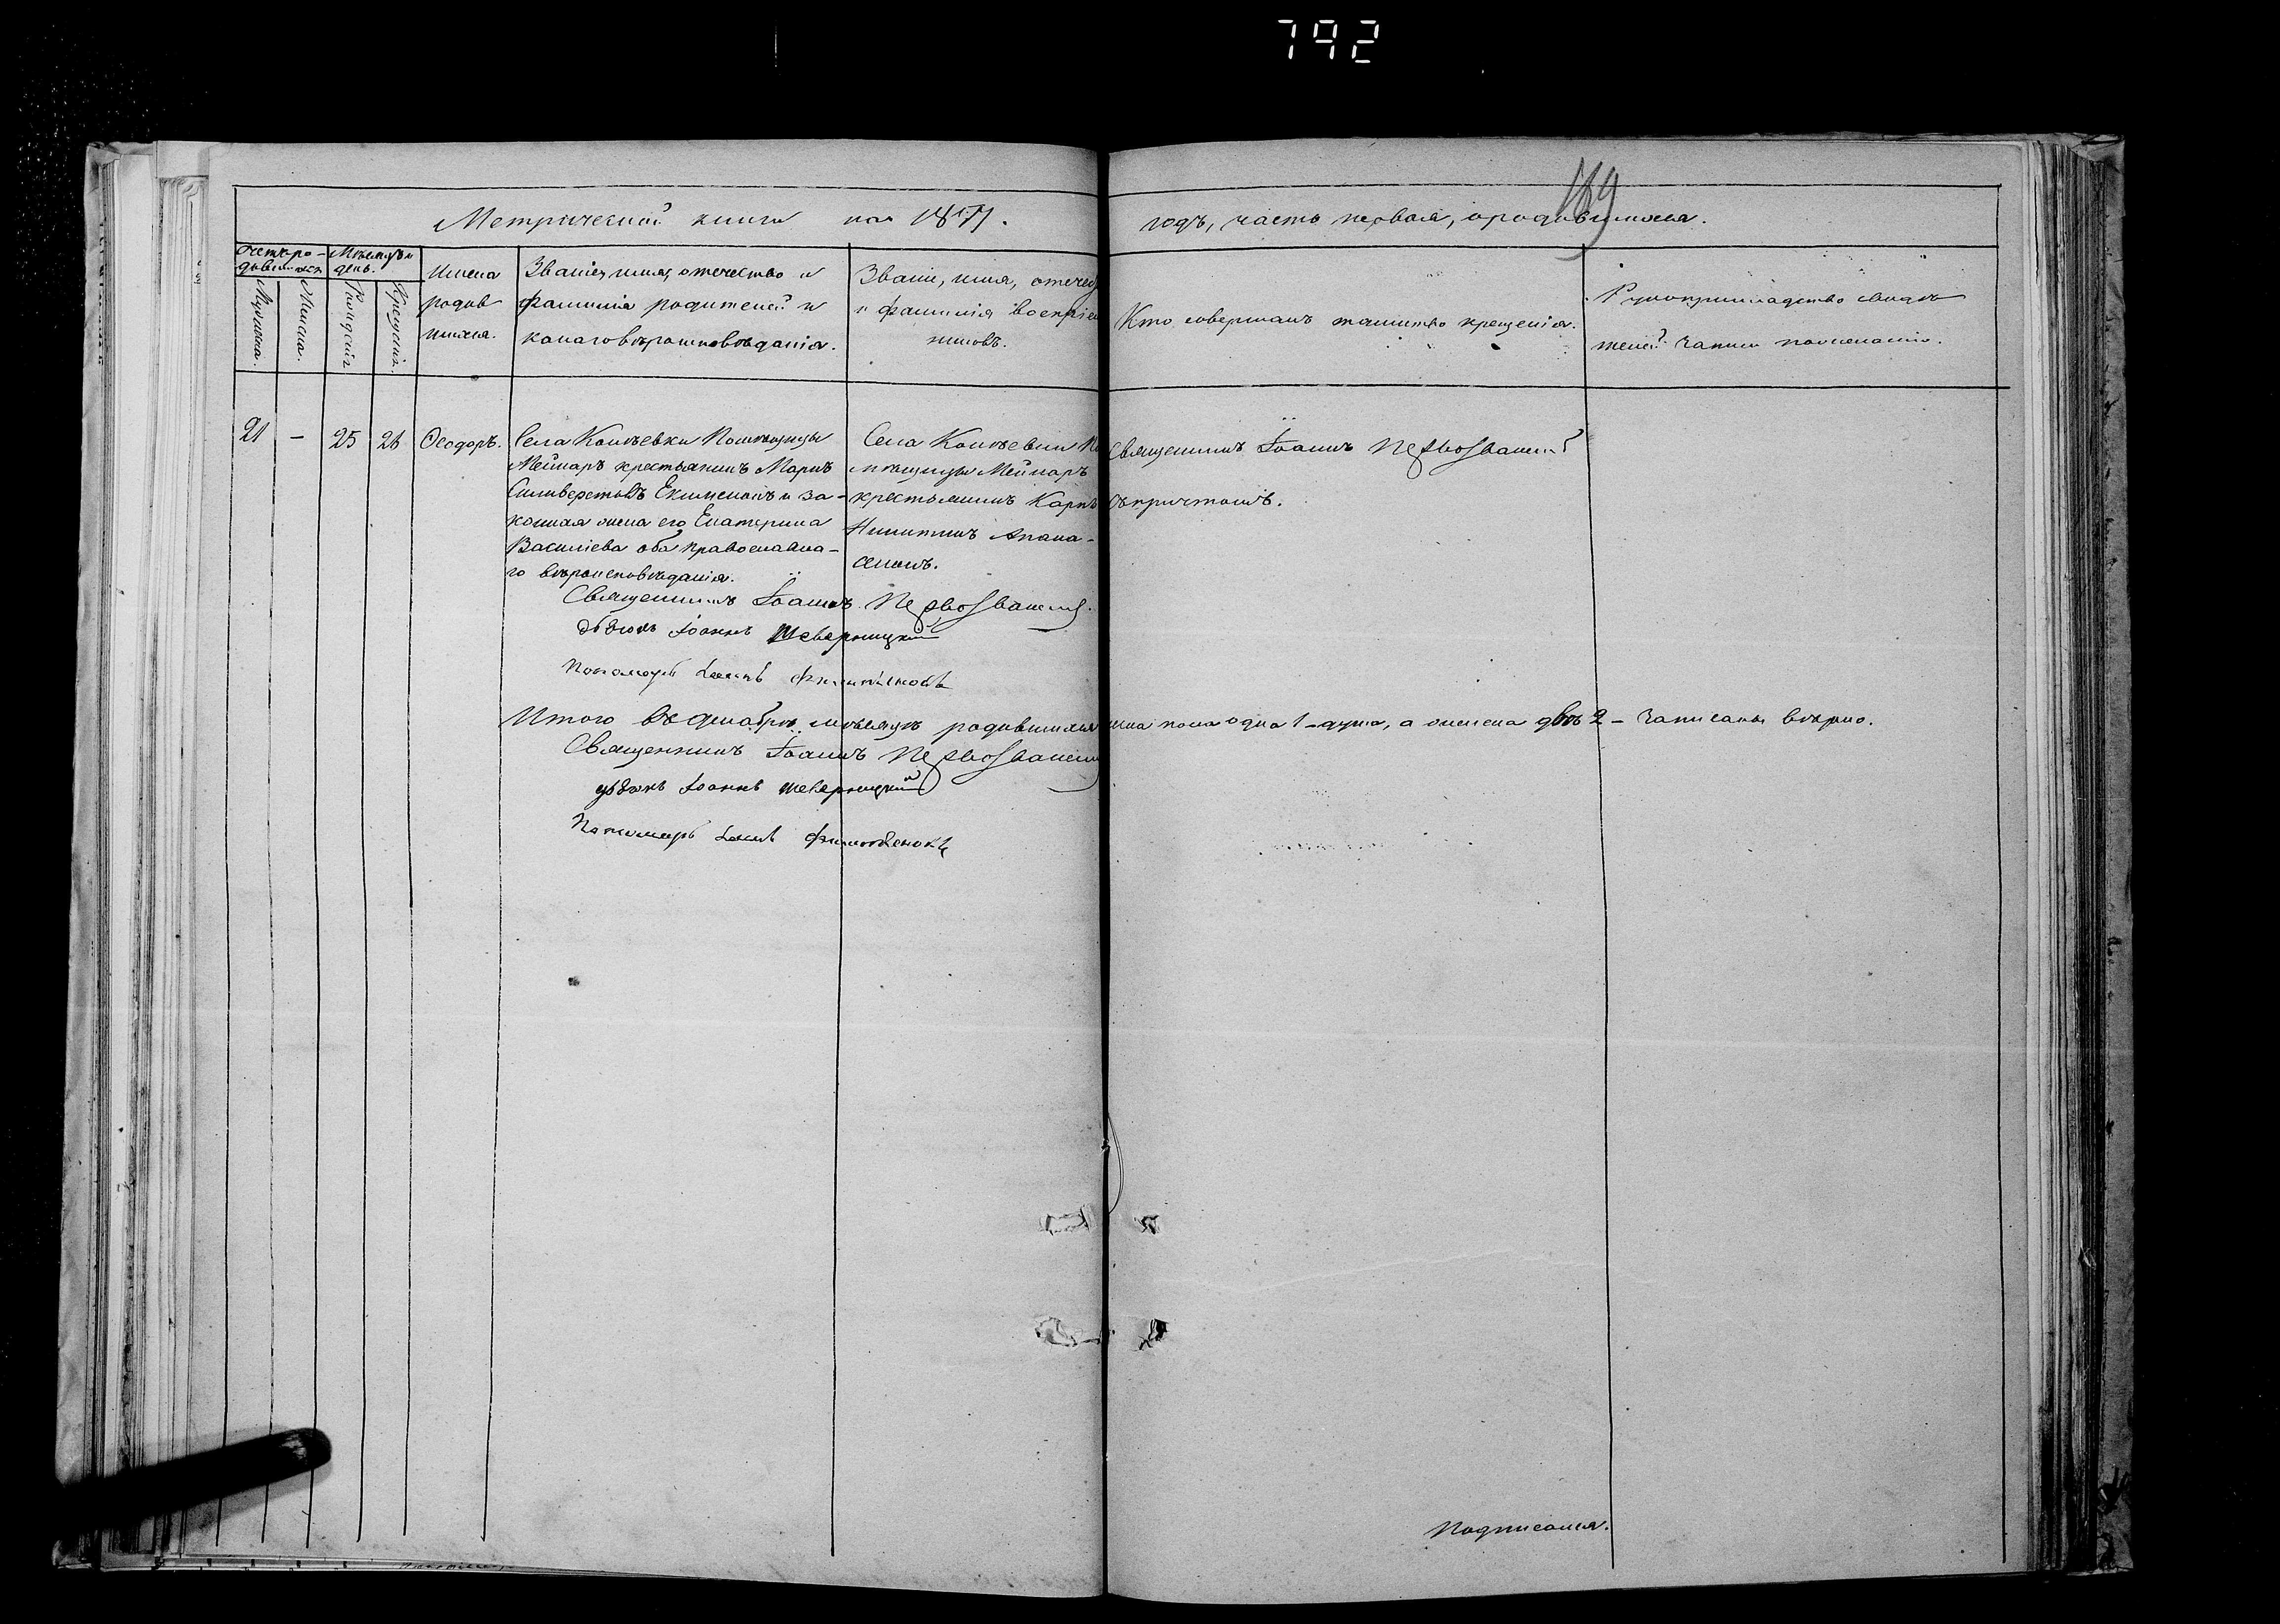 792
189
Метрической книги на 18 годъ, часть первая, о родившихся.
Счетъ ро-
дившихся
Мѣсяцъ и
день.
Мужеска.
Женска.
Рожденія
Крещенія.
Имена
родив
шихся.
Званіе, имя, отечество и
фамилія родителей и
какаго вѣроисповѣданія.
Званіе, имя, отечес
и фамилія воспріем
никовъ.
Кто совершалъ таинство крещенія.
Рукоприкладство свидѣ
телей записи по желанію.
21 – 25 26 Ѳеодоръ.
Села Помѣщицы
Мейнаръ крестьянинъ Маркъ
Сильверстовъ и за-
конная жена его Екатерина
Василіева оба православна-
го вѣроисповѣданія.
Села По
мѣщицы Мейнаръ
крестьянинъ Карпъ
Никитинъ Апана-
сенко.
Священникъ Іоаннъ Первозванскій
съ причтомъ.
Священникъ Іоаннъ Первозванскій
дьячокъ Іоаннъ Шеверницкій
Пономарь
Итого въ декабрѣ мѣсяцѣ родившихся мужеска пола одна 1 – душа, а женска двѣ 2 – записаны вѣрно.
Священникъ Іоаннъ Первозванскій
дьячокъ Іоаннъ Шеверницкій
Пономарь
Подписался.